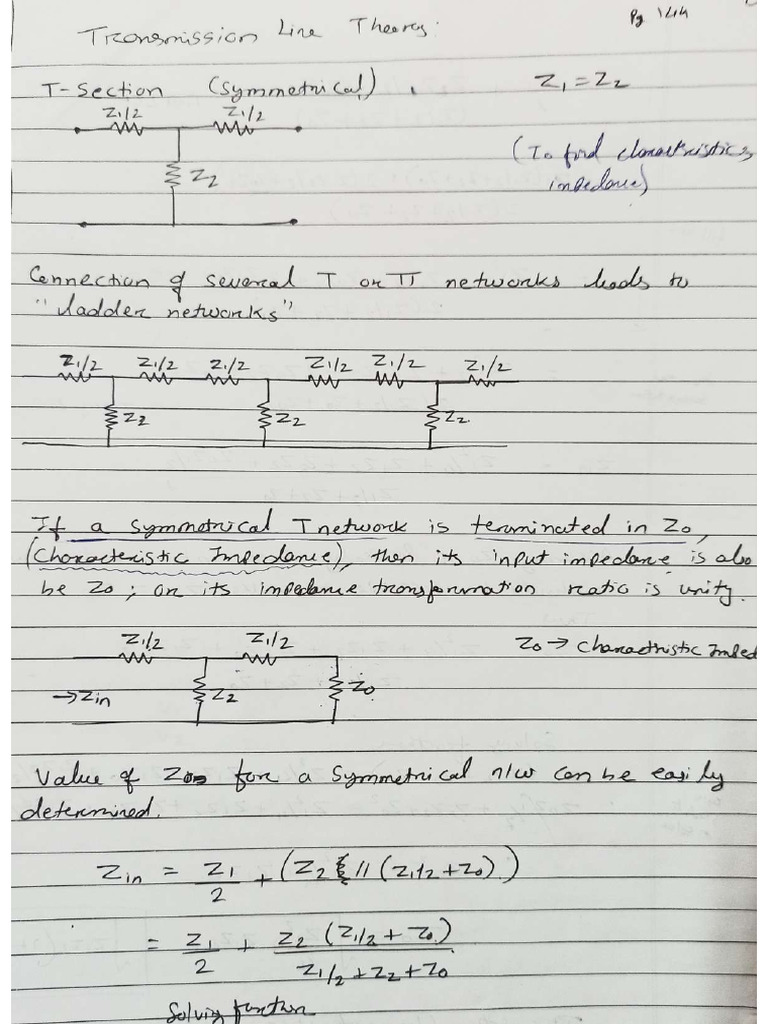 Pg 144
Transmission Line Theory:
T-Section (Symmetrical), Z₁ = Z₂
Z₁/2 Z₁/2
Z₂
(To find charactristics
impedance)
Connection of several T or Π networks leads to
"ladder networks"
Z₁/2 Z₁/2 Z₁/2 Z₁/2 Z₁/2 Z₁/2
Z₂ Z₂ Z₂
If a symmetrical T network is terminated in Z₀,
(Characteristic Impedance), then its input impedance is also
be Z₀; or its impedance transformation ratio is unity.
Z₁/2 Z₁/2 Z₀ → Charactristic Imped
→ Zin Z₂ Z₀
Value of Z₀ for a symmetrical n/w can be easily
determined.
Zin = Z₁/2 + (Z₂ // (Z₁/2 + Z₀))
= Z₁/2 + Z₂ (Z₁/2 + Z₀) / Z₁/2 + Z₂ + Z₀
Solving function